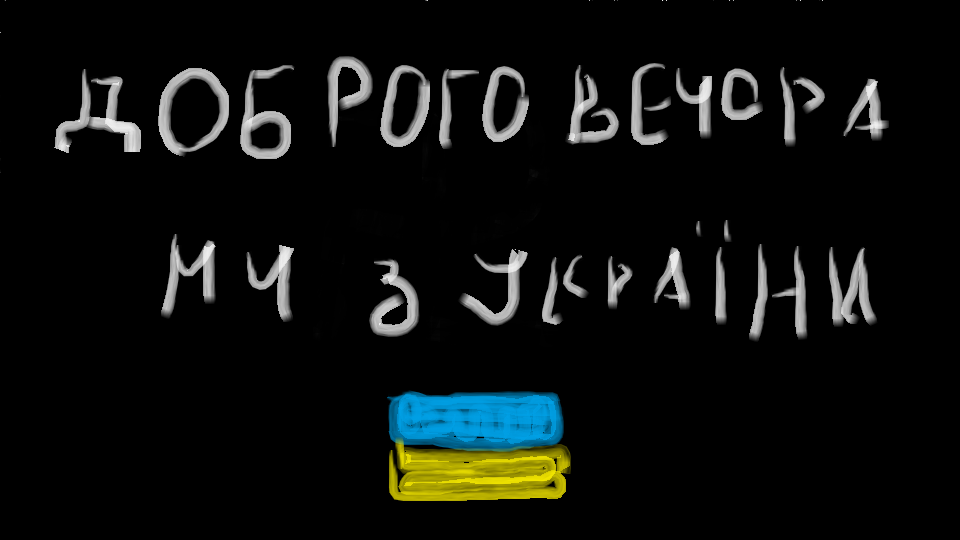 ДОБРОГО ВЕЧОРА
МЧ З УКРАЇНИ